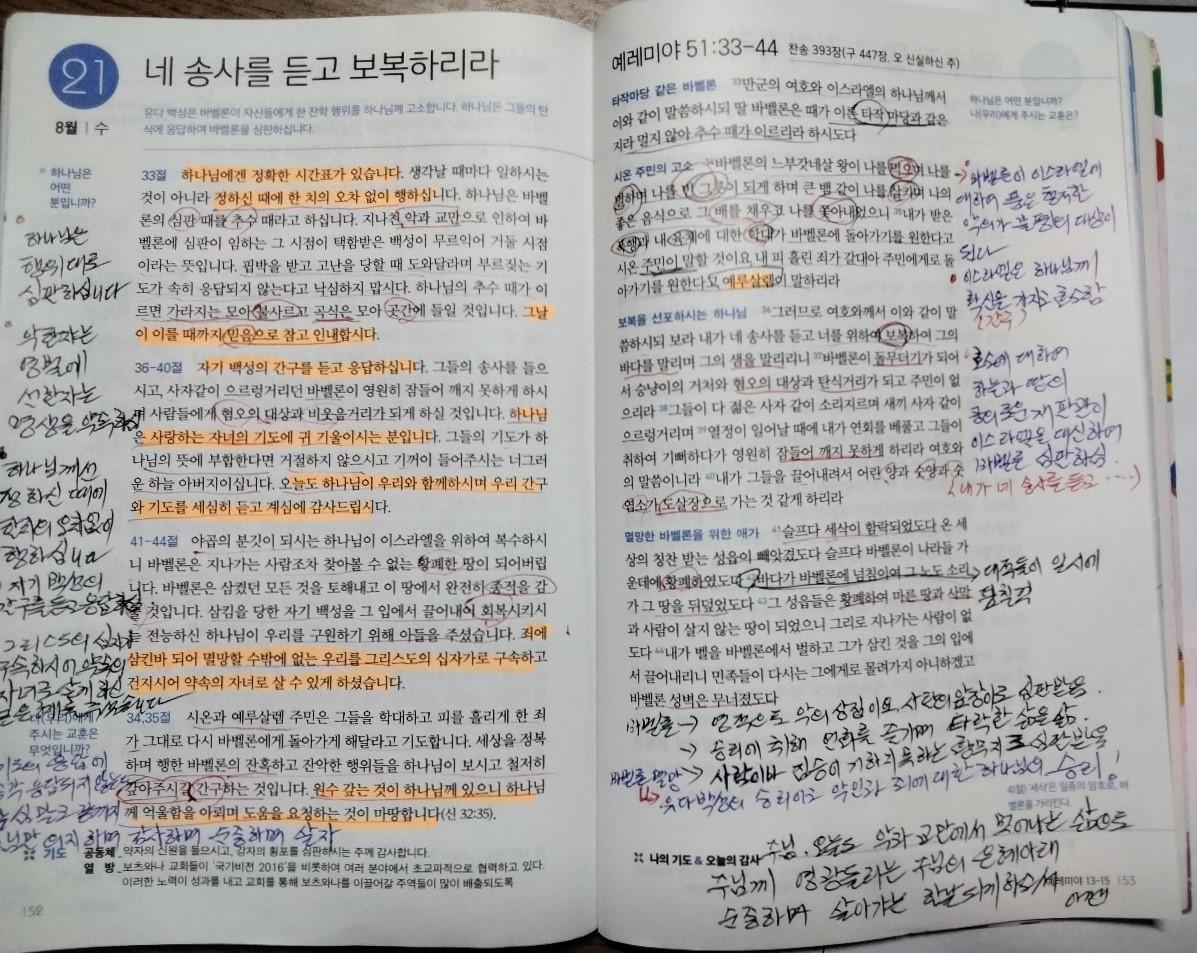 21
8월 | 수
네 송사를 듣고 보복하리라
유다 백성은 바벨론이 자신들에게 한 잔학 행위를 하나님께 고소합니다. 하나님은 그들의 탄
식에 응답하여 바벨론을 심판하십니다.
하나님은
어떤
분입니까?
33절 하나님에겐 정확한 시간표가 있습니다. 생각날 때마다 일하시는
것이 아니라 정하신 때에 한 치의 오차 없이 행하십니다. 하나님은 바벨
론의 심판 때를 추수 때라고 하십니다. 지나친 악과 교만으로 인하여 바
벨론에 심판이 임하는 그 시점이 택함받은 백성이 무르익어 거둘 시점
이라는 뜻입니다. 핍박을 받고 고난을 당할 때 도와달라며 부르짖는 기
도가 속히 응답되지 않는다고 낙심하지 맙시다. 하나님의 추수 때가 이
르면 가라지는 모아 불사르고 곡식은 모아 곳간에 들일 것입니다. 그날
이 이를 때까지 믿음으로 참고 인내합시다.
36-40절 자기 백성의 간구를 듣고 응답하십니다. 그들의 송사를 들으
시고, 사자같이 으르렁거리던 바벨론이 영원히 잠들어 깨지 못하게 하시
며 사람들에게 혐오의 대상과 비웃음거리가 되게 하실 것입니다. 하나님
은 사랑하는 자녀의 기도에 귀 기울이시는 분입니다. 그들의 기도가 하
나님의 뜻에 부합한다면 거절하지 않으시고 기꺼이 들어주시는 너그러
운 하늘 아버지이십니다. 오늘도 하나님이 우리와 함께하시며 우리 간구
와 기도를 세심히 듣고 계심에 감사드립시다.
41-44절 야곱의 분깃이 되시는 하나님이 이스라엘을 위하여 복수하시
니 바벨론은 지나가는 사람조차 찾아볼 수 없는 황폐한 땅이 되어버립
니다. 바벨론은 삼켰던 모든 것을 토해내고 이 땅에서 완전히 종적을 감
출 것입니다. 삼킴을 당한 자기 백성을 그 입에서 끌어내어 회복시키시
는 전능하신 하나님이 우리를 구원하기 위해 아들을 주셨습니다. 죄에
삼킨바 되어 멸망할 수밖에 없는 우리를 그리스도의 십자가로 구속하고
건지시어 약속의 자녀로 살 수 있게 하셨습니다.
내(우리)에게
주시는 교훈은
무엇입니까?
34,35절 시온과 예루살렘 주민은 그들을 학대하고 피를 흘리게 한 죄
가 그대로 다시 바벨론에게 돌아가게 해달라고 기도합니다. 세상을 정복
하며 행한 바벨론의 잔혹하고 잔악한 행위들을 하나님이 보시고 철저히
갚아주시길 간구하는 것입니다. 원수 갚는 것이 하나님께 있으니 하나님
께 억울함을 아뢰며 도움을 요청하는 것이 마땅합니다(신 32:35).
하나님은
행위대로
심판하십니다
악한자는
영벌에
선한자는
영생을 약속하셨
하나님께선
정하신 때에
한치의 오차없이
행하십니다
자기 백성의
간구를 듣고 응답하심
그리스도의 십자가
구속하시어 약속의
자녀로 살게 하신
응답되지 않는
의지하며 감사하며 순종하며 살자
기도 공동체_약자의 신원을 들으시고, 강자의 횡포를 심판하시는 주께 감사합니다.
열 방_보츠와나 교회들이 '국가비전 2016'을 비롯하여 여러 분야에서 초교파적으로 협력하고 있다.
이러한 노력이 성과를 내고 교회를 통해 보츠와나를 이끌어갈 주역들이 많이 배출되도록
152
예레미야 51:33-44 찬송 393장(구 447장, 오 신실하신 주)
타작마당 같은 바벨론 33만군의 여호와 이스라엘의 하나님께서
이와 같이 말씀하시되 딸 바벨론은 때가 이른 타작 마당과 같은
지라 멀지 않아 추수 때가 이르리라 하시도다
시온 주민의 고소 34바벨론의 느부갓네살 왕이 나를 먹으며 나를
멸하며 나를 빈 그릇이 되게 하며 큰 뱀 같이 나를 삼키며 나의
좋은 음식으로 그 배를 채우고 나를 쫓아내었으니 35내가 받은
폭행과 내 육체에 대한 학대가 바벨론에 돌아가기를 원한다고
시온 주민이 말할 것이요 내 피 흘린 죄가 갈대아 주민에게로 돌
아가기를 원한다고 예루살렘이 말하리라
보복을 선포하시는 하나님 36그러므로 여호와께서 이와 같이 말
씀하시되 보라 내가 네 송사를 듣고 너를 위하여 보복하여 그의
바다를 말리며 그의 샘을 말리리니 37바벨론이 돌무더기가 되어
서 승냥이의 거처와 혐오의 대상과 탄식거리가 되고 주민이 없
으리라 38그들이 다 젊은 사자 같이 소리지르며 새끼 사자 같이
으르렁거리며 39열정이 일어날 때에 내가 연회를 베풀고 그들이
취하여 기뻐하다가 영원히 잠들어 깨지 못하게 하리라 여호와
의 말씀이니라 40내가 그들을 끌어내려서 어린 양과 숫양과 숫
염소가 도살장으로 가는 것 같게 하리라
멸망한 바벨론을 위한 애가 41슬프다 세삭이 함락되었도다 온 세
상의 칭찬 받는 성읍이 빼앗겼도다 슬프다 바벨론이 나라들 가
운데에 황폐하였도다 42바다가 바벨론에 넘침이여 그 노도 소리
가 그 땅을 뒤덮었도다 43그 성읍들은 황폐하여 마른 땅과 사막
과 사람이 살지 않는 땅이 되었으니 그리로 지나가는 사람이 없
도다 44내가 벨을 바벨론에서 벌하고 그가 삼킨 것을 그의 입에
서 끌어내리니 민족들이 다시는 그에게로 몰려가지 아니하겠고
바벨론 성벽은 무너졌도다
하나님은 어떤 분입니까?
내(우리)에게 주시는 교훈은?
바벨론이 이스라엘에
대하여 품은 현저한
악의가 불평의 대상이
된다
이스라엘은 하나님께
확신을 가지고 호소함
(간구)
호소에 대하여
하늘과 땅의
공의로운 재판관이
이스라엘을 대신하여
바벨론 심판하심
(내가 네 송사를 듣고 ....)
대적들이 일시에
바벨론 → 영적으로 악의 상징이요, 사탄의 왕창이로 심판받음.
→ 승리에 취해 연회를 즐기며 타락한 삶을 삶.
바벨론 멸망 → 사람이나 짐승이 거하지 못하는 황무지로 심판받음
유다백성의 승리이고 악인과 죄에 대한 하나님의 승리!
41절) '세삭'은 일종의 암호로, 바
벨론을 가리킨다.
나의 기도 & 오늘의 감사
주님, 오늘도 악과 교만에서 벗어나는 삶으로
주님께 영광돌리는 주님의 은혜아래
순종하며 살아가는 한날 되게 하소서
아멘
예레미야 13-15 153